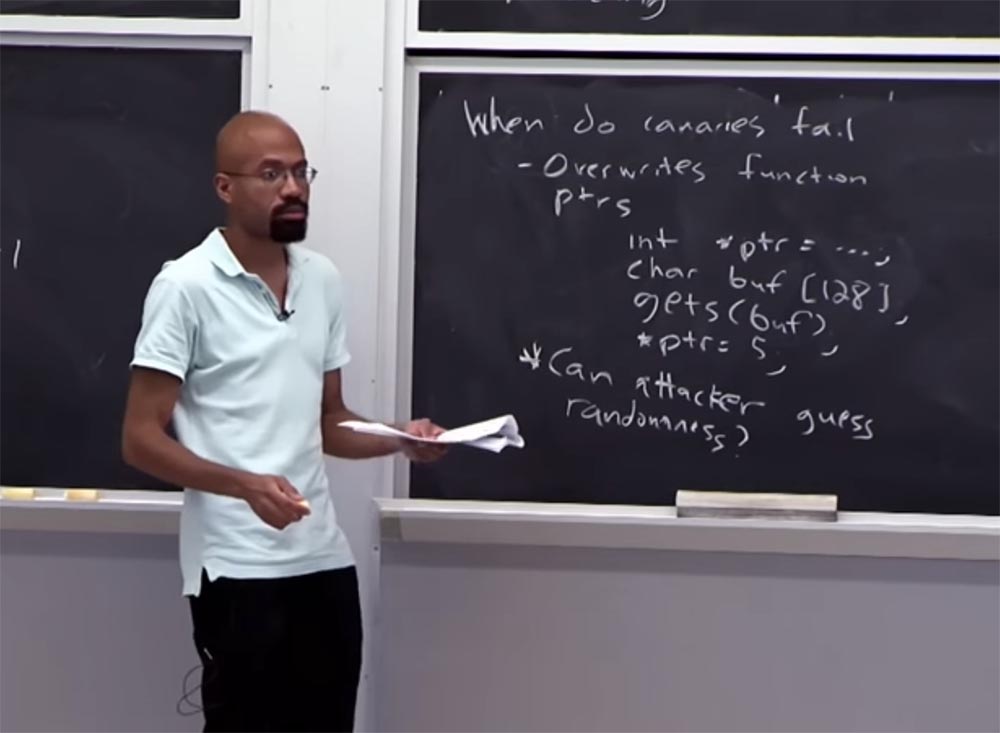 When do canaries fail
- Overwrites function
ptrs
int *ptr = ...;
char buf [128];
gets(buf);
*ptr = 5;
* Can attacker guess
randomness?